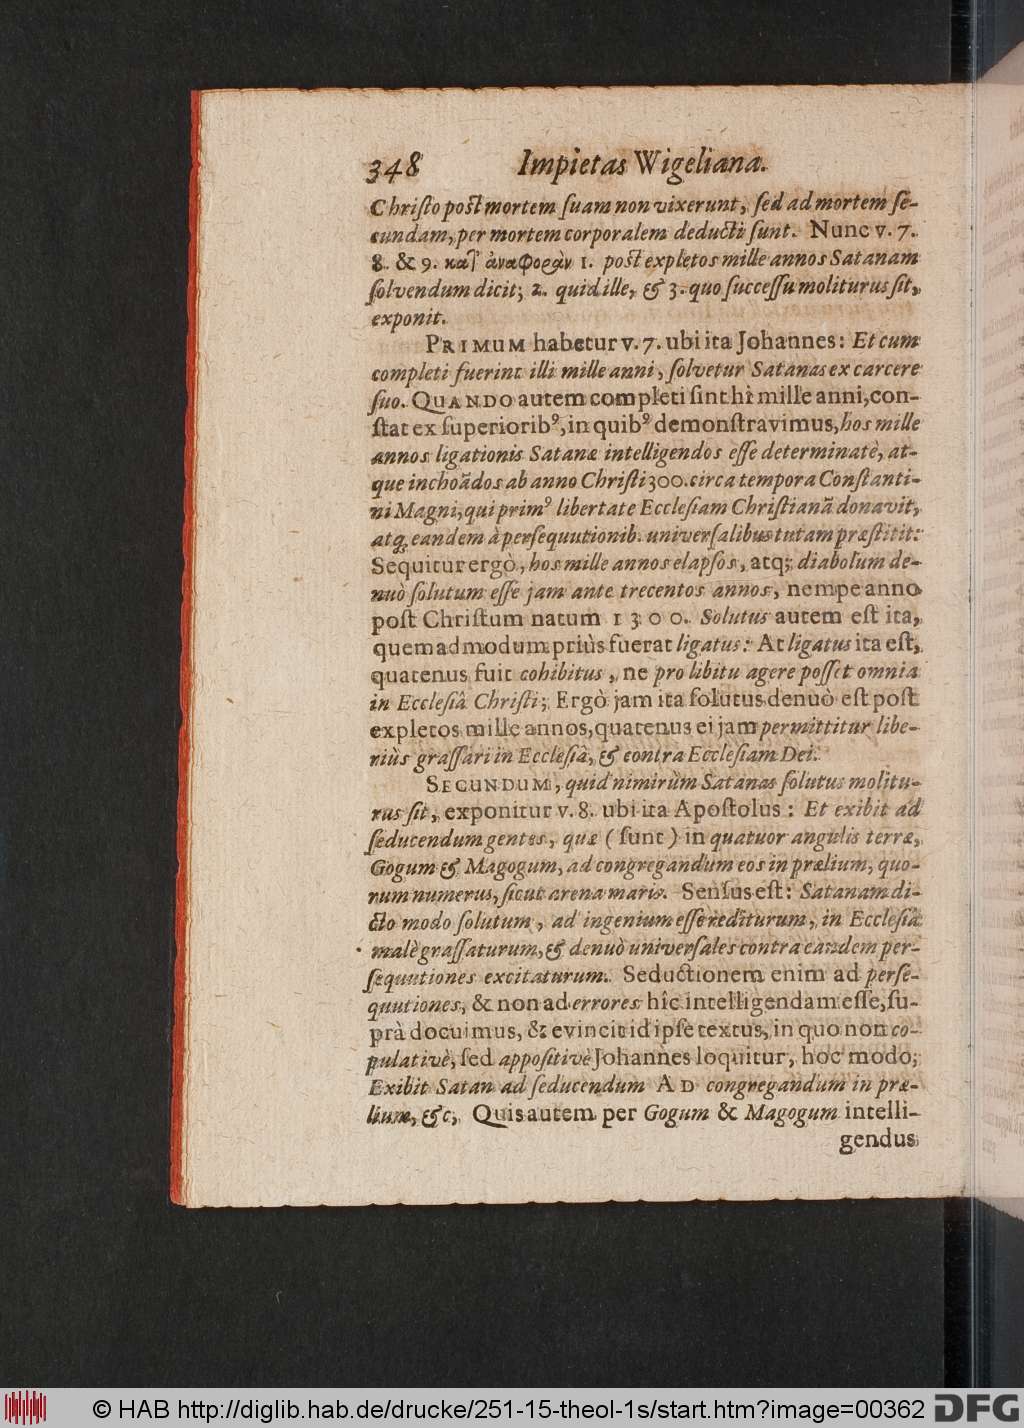 348 Impietas Wigeliana.
Christo post mortem suam non vixerunt, sed ad mortem se-
cundam, per mortem corporalem deducti sunt. Nunc v. 7.
8. & 9. κατ' ἀναφορὰν 1. post expletos mille annos Satanam
solvendum dicit; 2. quid ille, & 3. quo successu moliturus sit,
exponit.
PRIMUM habetur v. 7. ubi ita Johannes: Et cum
completi fuerint illi mille anni, solvetur Satanas ex carcere
suo. QUANDO autem completi sint hi mille anni, con-
stat ex superioribꝰ, in quibꝰ demonstravimus, hos mille
annos ligationis Satanæ intelligendos esse determinatè, at-
que inchoãdos ab anno Christi 300. circa tempora Constanti-
ni Magni, qui primꝰ libertate Ecclesiam Christianã donavit,
atq; eandem à persequutionib. universalibus tutam præstitit:
Sequitur ergò, hos mille annos elapsos, atq; diabolum de-
nuò solutum esse jam ante trecentos annos, nempe anno
post Christum natum 1300. Solutus autem est ita,
quemadmodum priùs fuerat ligatus: At ligatus ita est,
quatenus fuit cohibitus, ne pro libitu agere posset omnia
in Ecclesiâ Christi; Ergò jam ita solutus denuò est post
expletos mille annos, quatenus ei jam permittitur libe-
riùs grassari in Ecclesiâ, & contra Ecclesiam Dei.
SECUNDUM, quid nimirùm Satanas solutus molitu-
rus sit, exponitur v. 8. ubi ita Apostolus: Et exibit ad
seducendum gentes, quæ (sunt) in quatuor angulis terræ,
Gogum & Magogum, ad congregandum eos in prælium, quo-
rum numerus, sicut arena maris. Sensus est: Satanam di-
cto modo solutum, ad ingenium esse rediturum, in Ecclesiâ
malè grassaturum, & denuò universales contra eandem per-
sequutiones excitaturum. Seductionem enim ad perse-
quutiones, & non ad errores hîc intelligendam esse, su-
prà docuimus, & evincit id ipse textus, in quo non co-
pulativè, sed appositivè Johannes loquitur, hoc modo;
Exibit Satan ad seducendum AD congregandum in præ-
lium, &c, Quis autem per Gogum & Magogum intelli-
gendus
© HAB http://diglib.hab.de/drucke/251-15-theol-1s/start.htm?image=00362
DFG